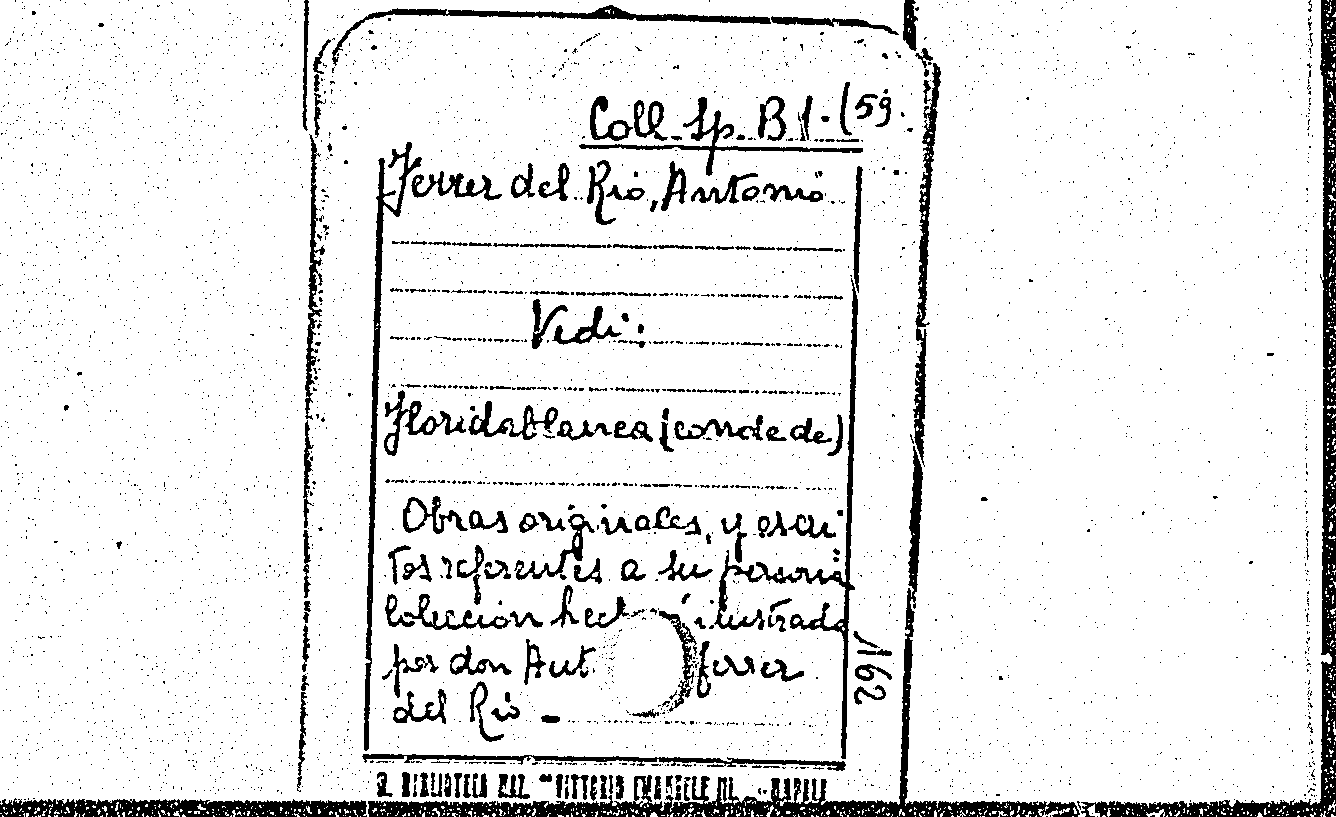 Coll. Sp. B 1. (59.
Ferrer del Rio, Antonio
Vedi:
Floridablanca (conde de)
Obras originales, y escri
tos referentes a su persona
Coleccion ilustrada
por don Ferrer
del Rio -
162
R. BIBLIOTECA NAZ. "VITTORIO EMANUELE III. - NAPOLI